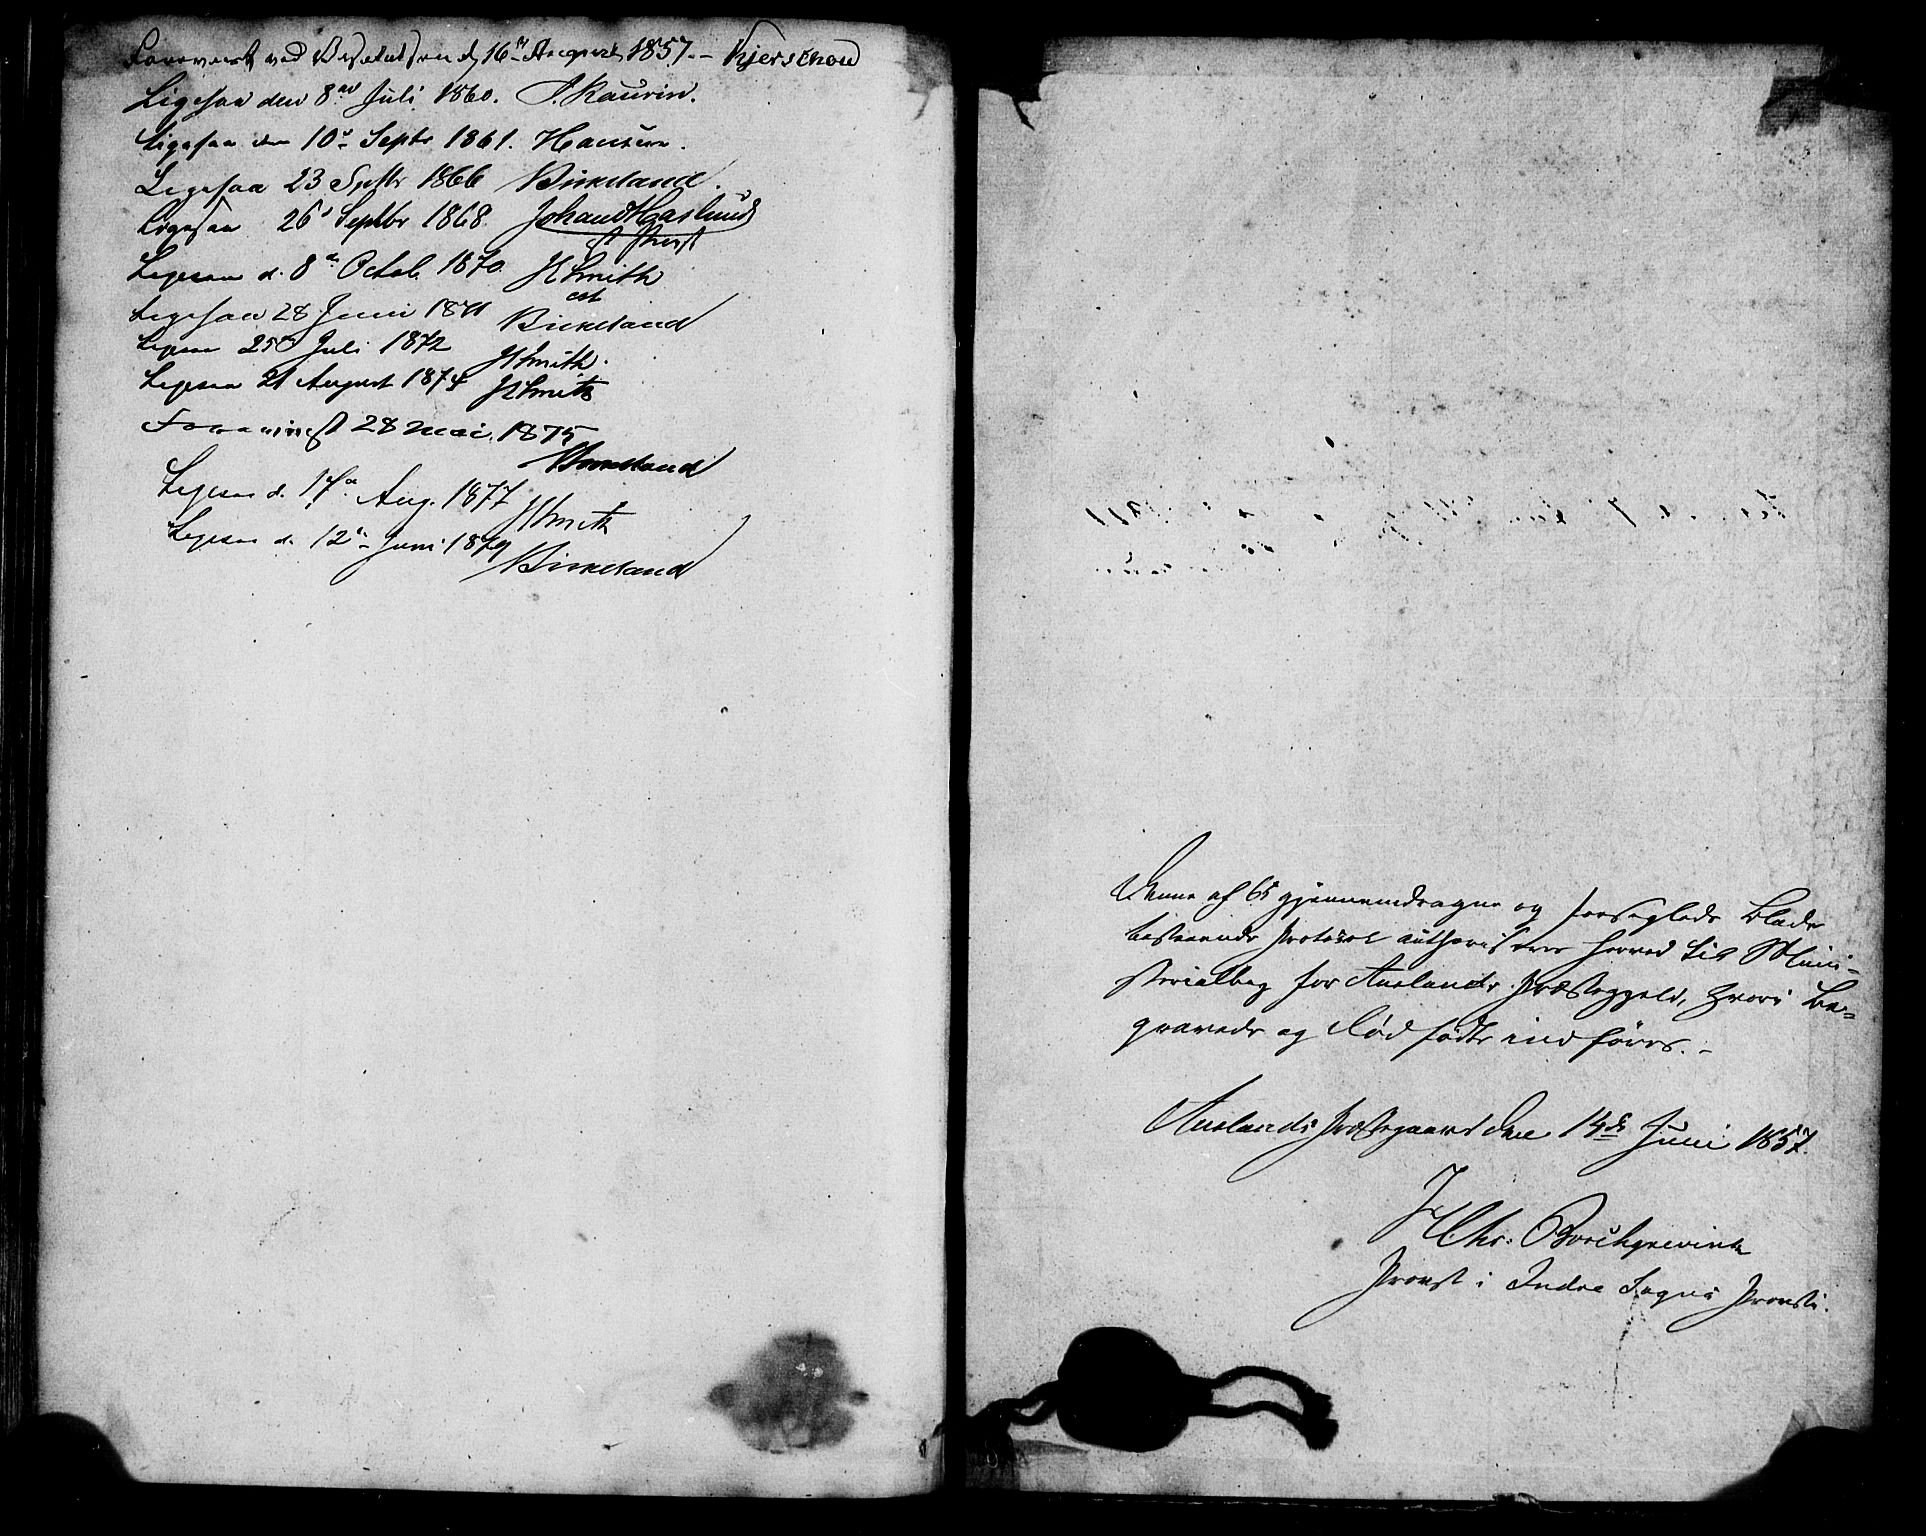 Foreviist ved Visitatsen d. 16de August 1857. – Kjerschow
Ligesaa den 8de Juli 1860. J. Kaurin.
Ligesaa den 10de Septr 1861. Hansen.
Ligesaa 23 Septbr 1866 Birkeland.
Ligesaa 26de Septbr 1868. Johan Haslund
cst Provst
Ligesaa d. 8de Octob. 1870. JSmith
cst
Ligesaa 28 Juni 1871 Birkeland
Ligesaa 25de Juli 1872 JSmith.
Ligesaa 21 August 1874 JSmith
Foreviist 28 Mai. 1875
Birkeland
Ligesaa d. 17de Aug. 1877
JSmith
Ligesaa d. 12te Juni 1879
Birkeland
Denne af 65 gjennemdragne og forseglede Blade
bestaaende Protokol authoriseres herved til Mini-
sterialbog for Aurlands Præstegjeld, hvori Be-
gravede og Dødfødte indføres. –
Aurlands Præstegaard den 14de Juni 1857.
J Chr: Borchgrevink
Provst i Indre Sogns Provsti.